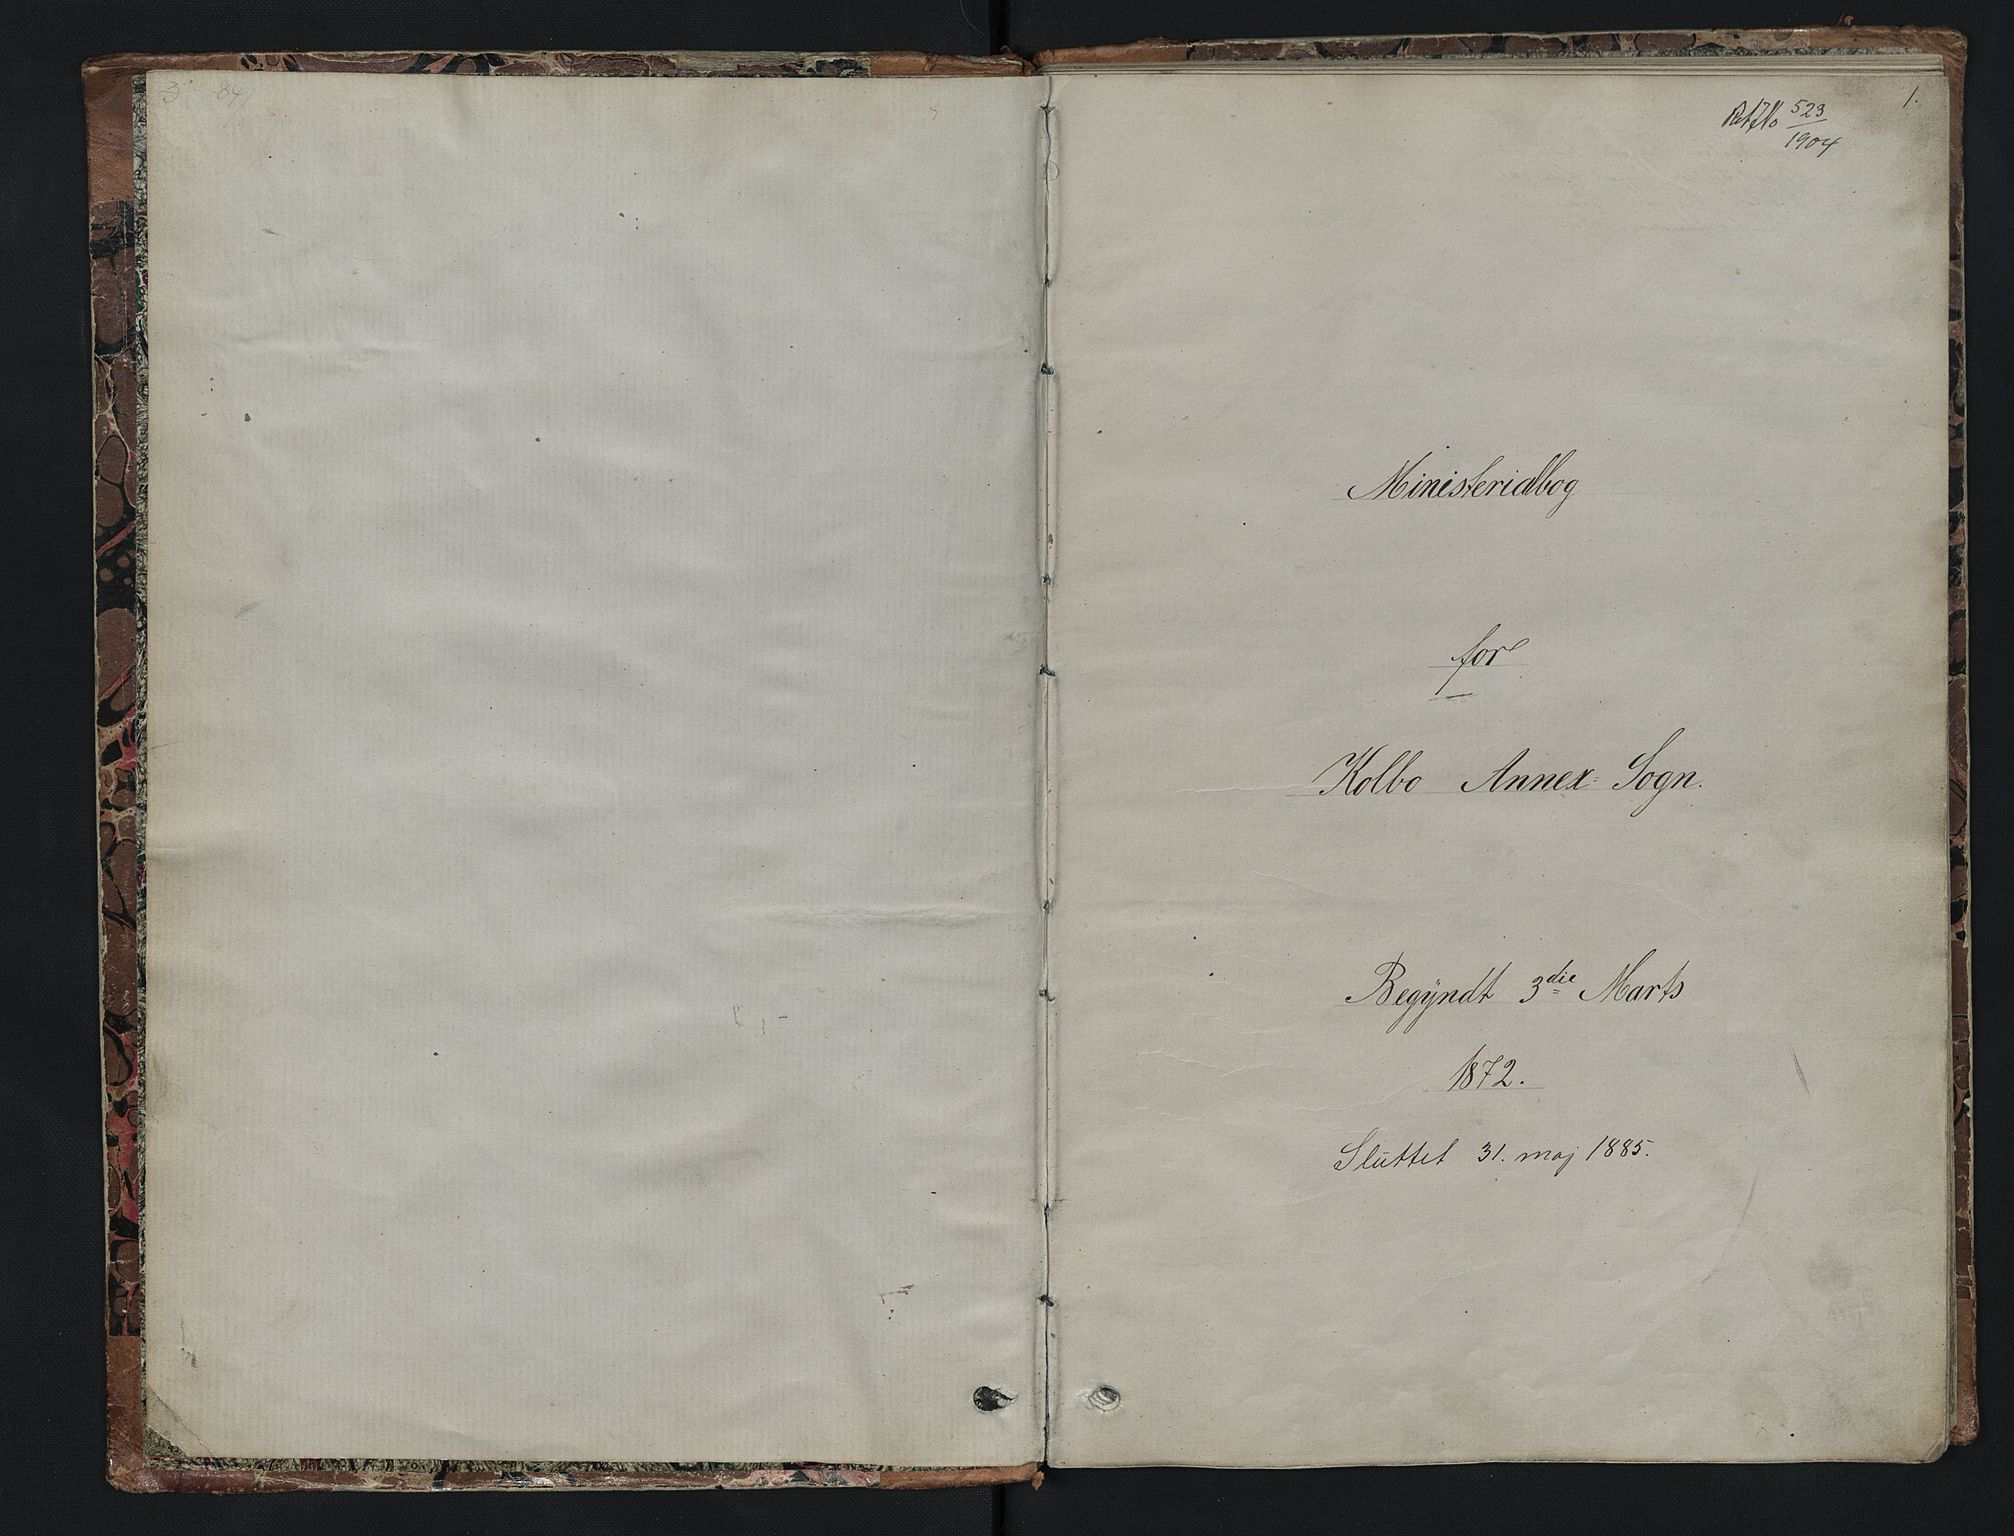 1.
523
1904
Ministerialbog
for
Kolbo Annex= Sogn.
Begÿndt 3die Marts
1872.
Sluttet 31. maj 1885.